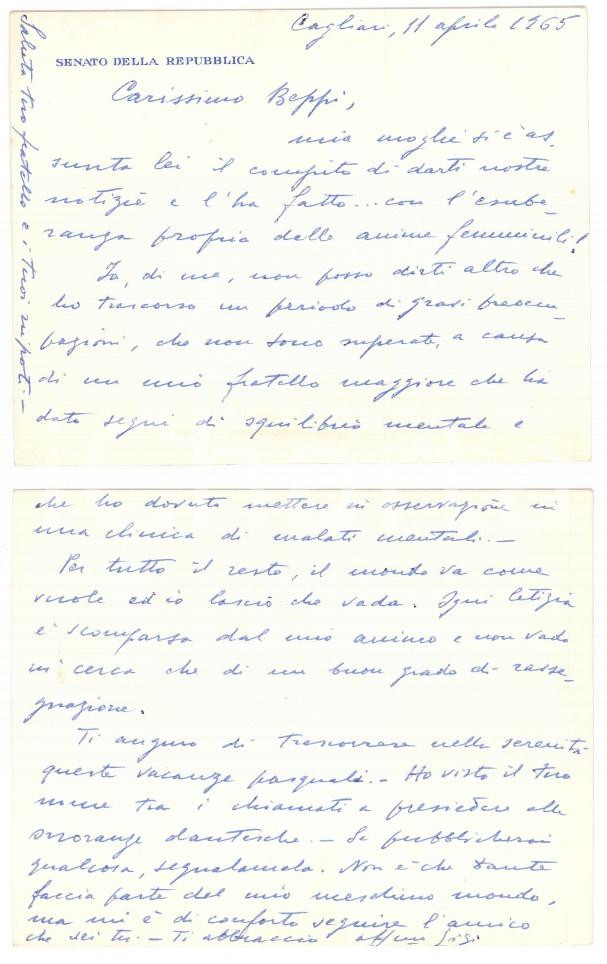 Cagliari, 11 aprile 1965
SENATO DELLA REPUBBLICA
Carissimo Beppi,
mia moglie si è as,
sunta lei il compito di darti nostre
notizie e l'ha fatto... con l'esube-
ranza propria delle anime femminili!
Io, di me, non posso dirti altro che
ho trascorso un periodo di gravi preoccu-
pazioni, che non sono superate, a causa
di un mio fratello maggiore che ha
dato segni di squilibrio mentale e
Saluta tuo fratello e i tuoi nipoti. -
che ho dovuto mettere in osservazione in
una clinica di malati mentali. -
Per tutto il resto, il mondo va come
vuole ed io lascio che vada. Ogni letizia
è scomparsa dal mio animo e non vado
in cerca che di un buon grado di rasse-
gnazione.
Ti auguro di trascorrere nella serenità
queste vacanze pasquali. - Ho visto il tuo
nome tra i chiamati a presiedere alle
onoranze dantesche. - Se pubblicherai
qualcosa, segnalamela. Non è che Dante
faccia parte del mio meschino mondo,
ma mi è di conforto seguire l'amico
che sei tu. - Ti abbraccio aff.mo Gigi